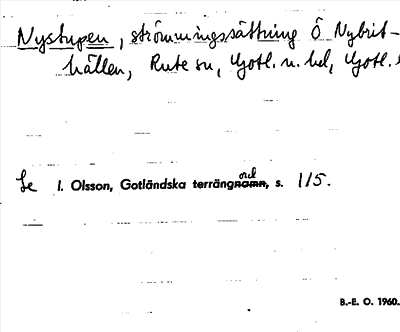 Nystupen, strömmingssättning Ö Nybrit-
hällen, Rute sn, Gotl. n. hd, Gotl.
Se I. Olsson, Gotländska terrängord, s. 115.
B.-E. O. 1960.